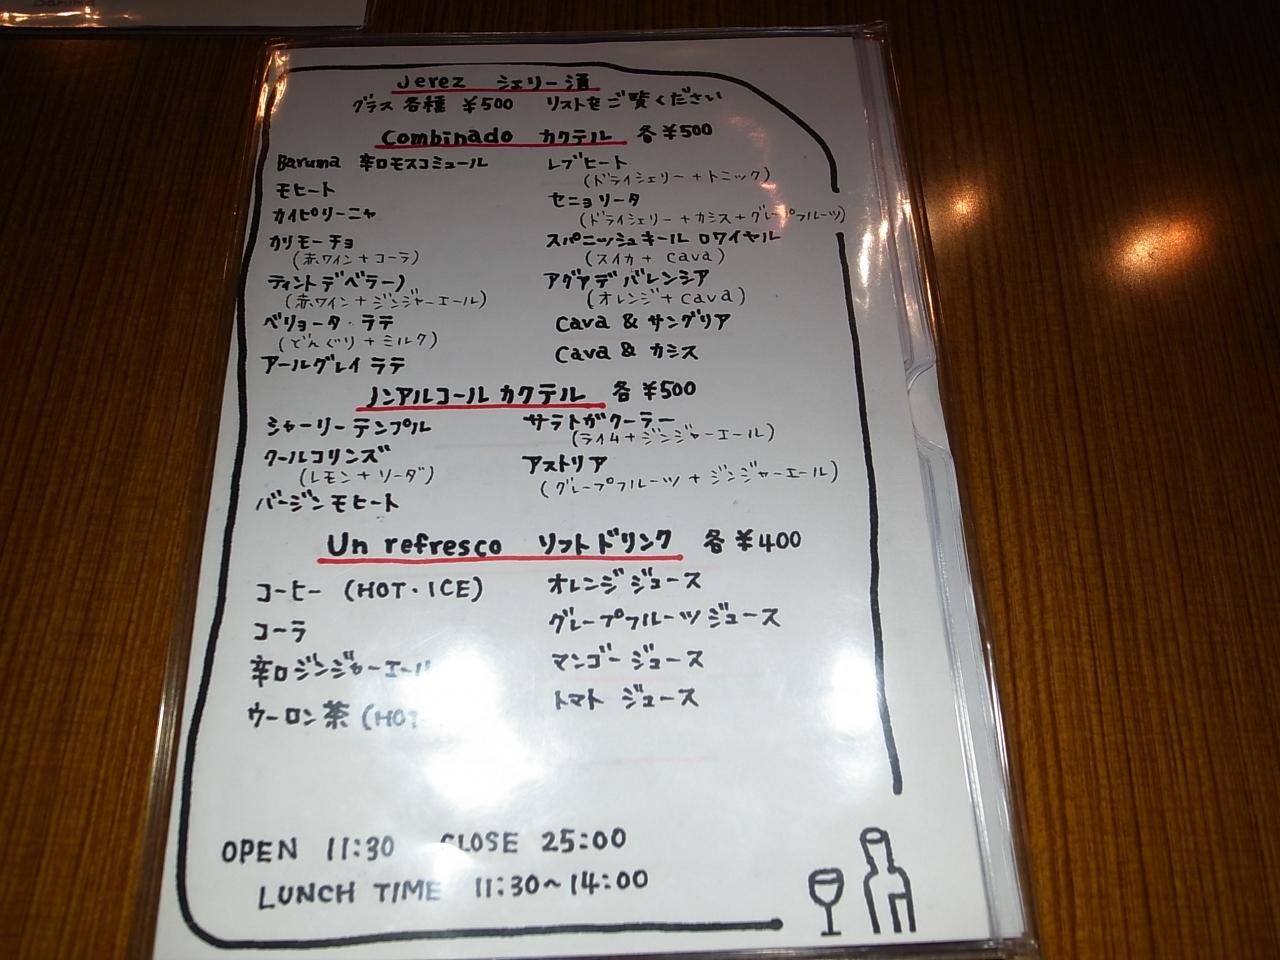 Baruma
Jerez シェリー酒
グラス 各種 ¥500 リストをご覧ください
Combinado カクテル 各¥500
Baruma 辛口モスコミュール
モヒート
カイピリーニャ
カリモーチョ
(赤ワイン+コーラ)
ティントデベラーノ
(赤ワイン+ジンジャーエール)
ベリョータ・ラテ
(どんぐり+ミルク)
アールグレイ ラテ
レブヒート
(ドライシェリー+トニック)
セニョリータ
(ドライシェリー+カシス+グレープフルーツ)
スパニッシュキール ロワイヤル
(スイカ+ cava)
アグアデ バレンシア
(オレンジ+cava)
Cava & サングリア
Cava & カシス
ノンアルコール カクテル 各 ¥500
シャーリーテンプル
クールコリンズ
(レモン+ソーダ)
バージンモヒート
サラトガクーラー
(ライム+ジンジャーエール)
アストリア
(グレープフルーツ+ジンジャーエール)
Un refresco ソフトドリンク 各 ¥400
コーヒー (HOT・ICE)
コーラ
辛口ジンジャーエール
ウーロン茶 (HOT
オレンジジュース
グレープフルーツジュース
マンゴー ジュース
トマト ジュース
OPEN 11:30 CLOSE 25:00
LUNCH TIME 11:30~14:00